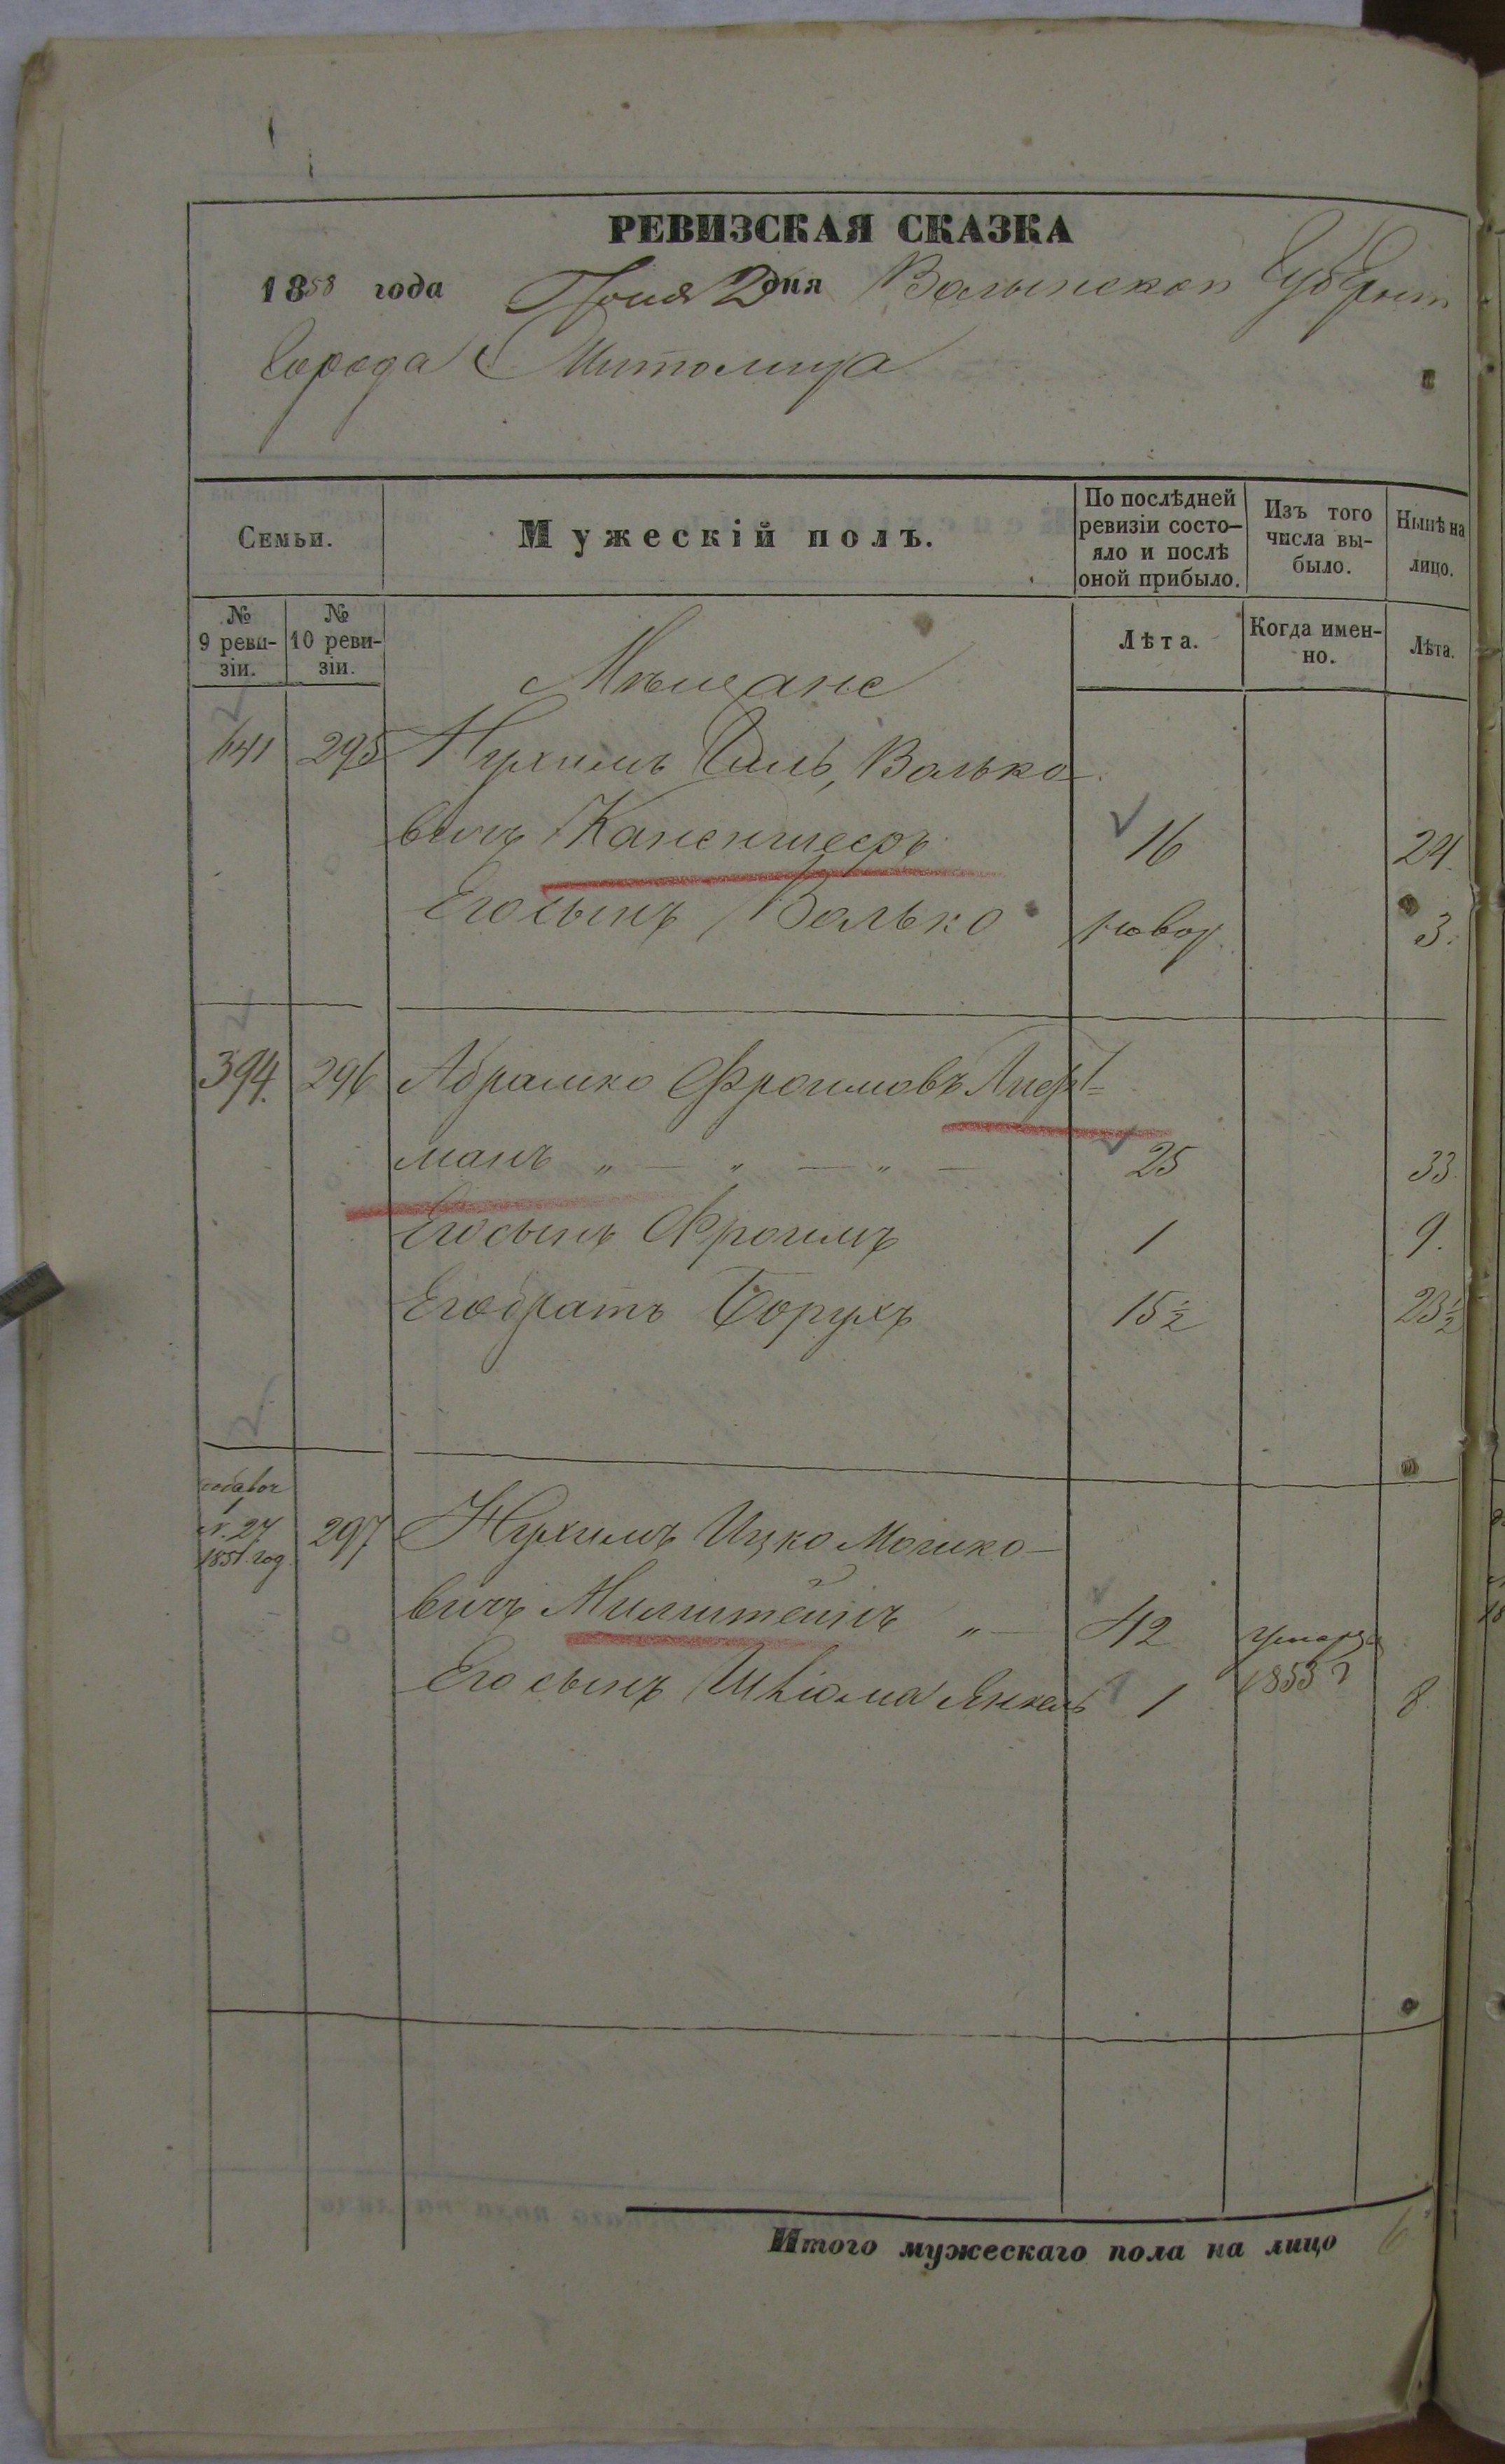 РЕВИЗСКАЯ СКАЗКА
1858 года Іюня 2 дня Волынской Губерніи
Города Житомира
Семьи.
Мужескій полъ.
По послѣдней ревизіи состо-
яло и послѣ
оной прибыло.
Изъ того
числа вы-
было.
Нынѣ на
лицо.
№
9 реви-
зіи.
№
10 реви-
зіи.
Лѣта.
Когда имен-
но.
Лѣта.
Мѣщане
141 295 Нухимъ Гиль, Валько-
вичъ 16 24.
Его сынъ Валько новор. 3.
394. 296 Абрамко Фроимовъ Лиф-
манъ „ — „ — „ — 25 33
Его сынъ Фроимъ 1 9.
Его братъ Борухъ 15½ 23½
N. 27
1851. год.
297 Нухимъ Ицко Мошко-
вичъ Милштейнъ „ — 42 умеръ
Его сынъ Шлiома Янкель 1 1853 8
Итого мужескаго пола на лицо 6